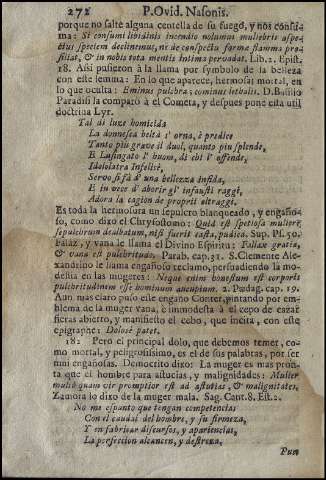 272 P. Ovid. Nasonis.
porque no salte alguna centella de su fuego, y nos consu-
ma: Si consumi libidinis incendio nolumus muliebris aspe-
ctus speciem declinemus, ne de conspectu formæ flamma pro-
siliat, & in nobis tota mentis intima peruadat. Lib. 2. Epist.
18. Assi pusieron à la llama por symbolo de la belleza
con este lemma: En lo que aparece, hermosa; mortal, en
lo que oculta: Eminus pulchra; cominus lethalis. D. Basilio
Paradisi la comparò al Cometa, y despues pone esta util
doctrina Lyr.
Tal di luxe homicida
La donnesca beltà s' orna, è predice
Tanto più grave il duol, quanto piu splende,
E Lusingato l' huom, di chi l' offende,
Idolatra Infelice,
Servo si fà d' una bellezza infida,
E in vece d' aborir gl' infausti raggi,
Adora la cagion de proprii altraggi.
Es toda la hermosura un sepulcro blanqueado, y engaño-
so, como dixo el Chrysostomo: Quid est spetiosa mulier,
sepulchrum dealbatum, nisi fuerit casta, pudica. Sup. Pl. 50.
Falàz, y vana le llama el Divino Espiritu: Fallax gratia,
& vana est pulchritudo. Parab. cap. 31. S. Clemente Ale-
xandrino le llama engañoso reclamo, persuadiendo la mo-
destia en las mugeres: Neque enim honestum est corporis
pulchritudinem esse hominum aucupium. 2. Pædag. cap. 19.
Aun mas claro puso este engaño Conter, pintando por em-
blema de la muger vana, è immodesta à el cepo de cazar
fieras abierto, y manifiesto el cebo, que incita, con este
epigraphe: Dolosè patet.
18: Pero el principal dolo, que debemos temer, co-
mo mortal, y peligrosissimo, es el de sus palabras, por ser
mui engañosas. Democrito dixo: La muger es mas prom-
ta que el hombre para astucias, y malignidades: Mulier
multò quam vir promptior est ad astutias, & malignitates.
Zamora lo dixo de la muger mala. Sag. Cant. 8. Est. 2.
No me espanto que tengan competencias
Con el caudal del hombre, y su firmeza,
Y en fabricar discursos, y apariencias,
La perfeccion alcancen, y destreza,
Pun